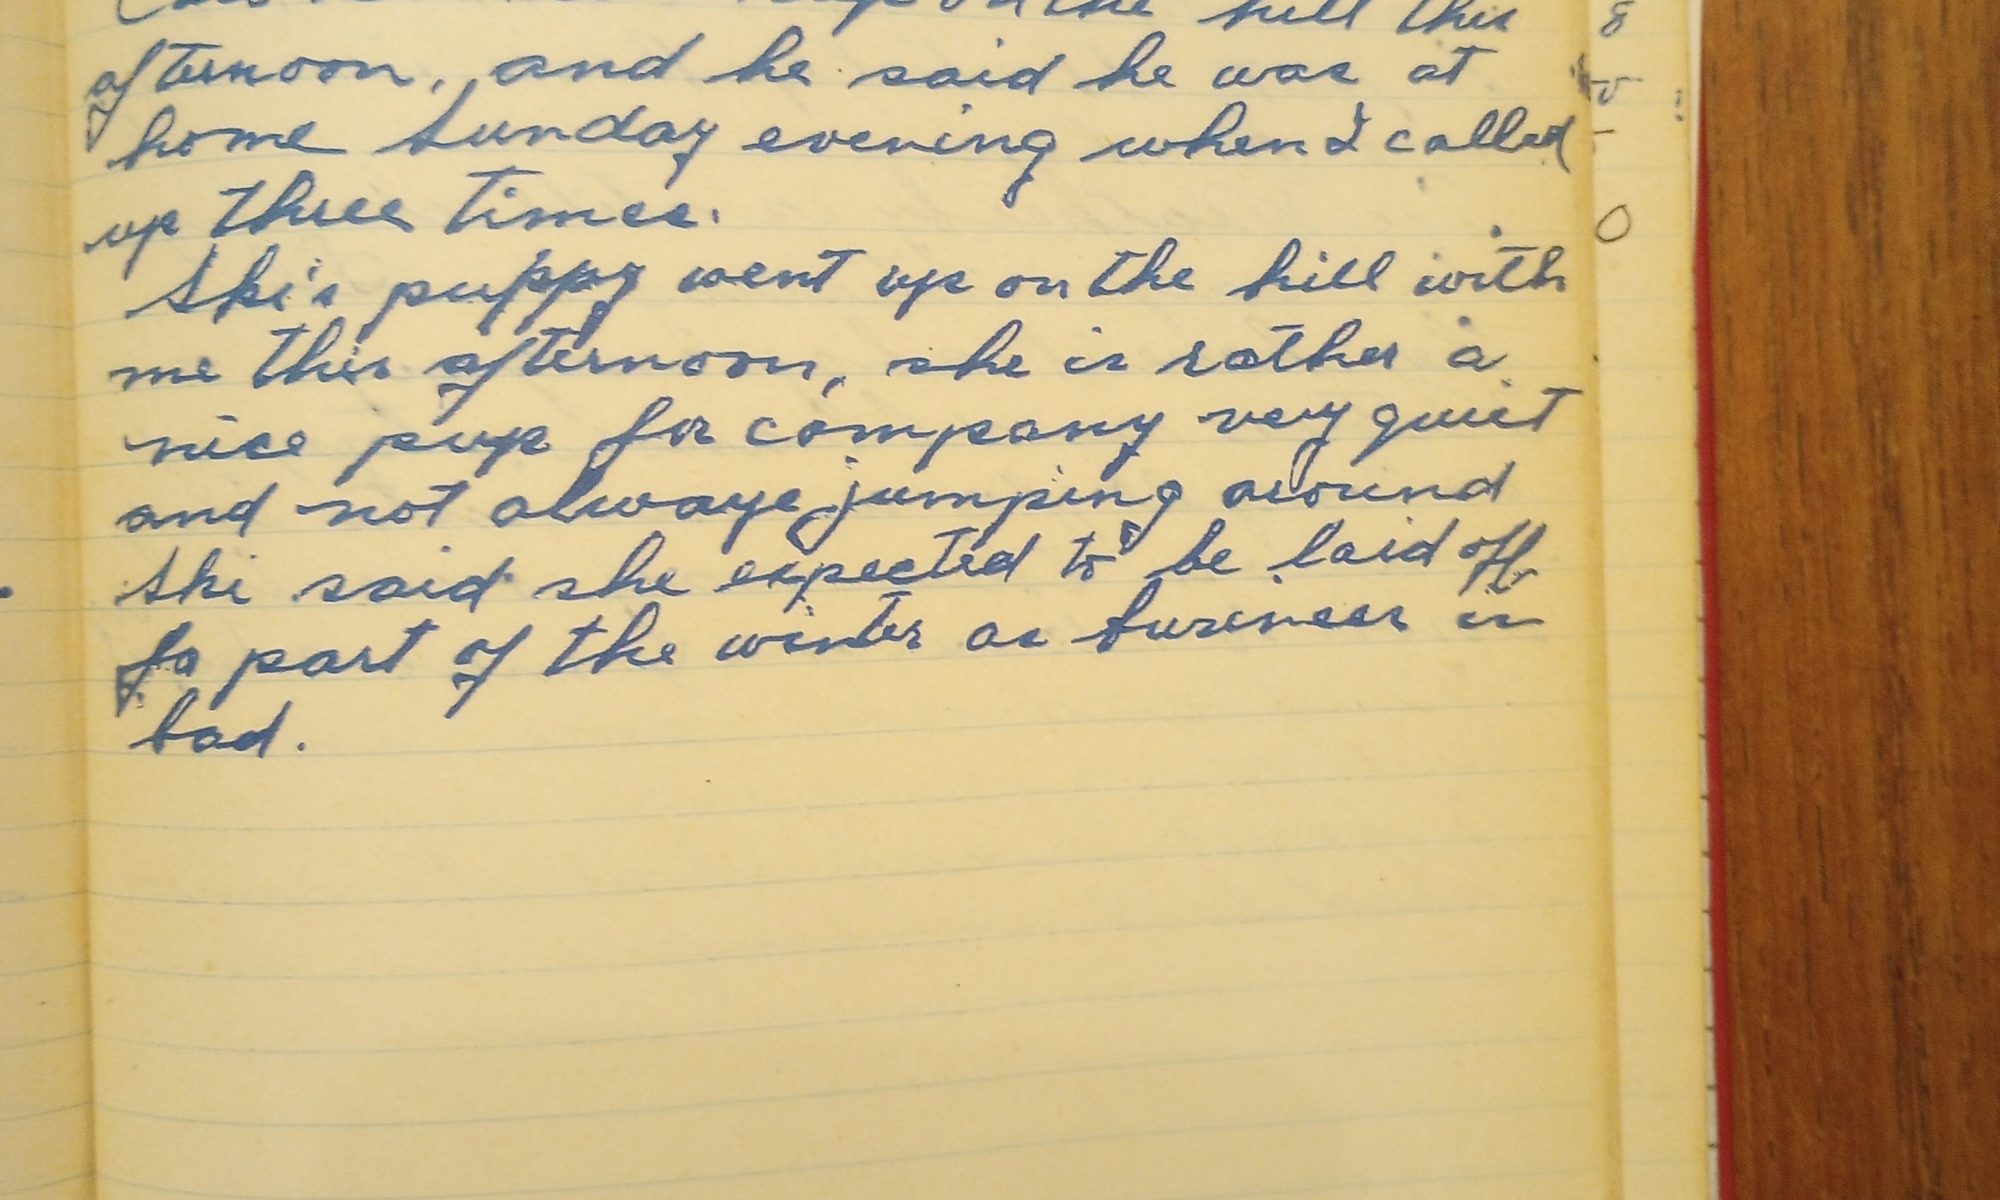 on the hill this
afternoon, and he said he was at
home Sunday evening when I called
up three times.
Ski's puppy went up on the hill with
me this afternoon, she is rather a
nice pup for company very quiet
and not always jumping around
Ski said she expected to be laid off
fo part of the winter as business is
bad.